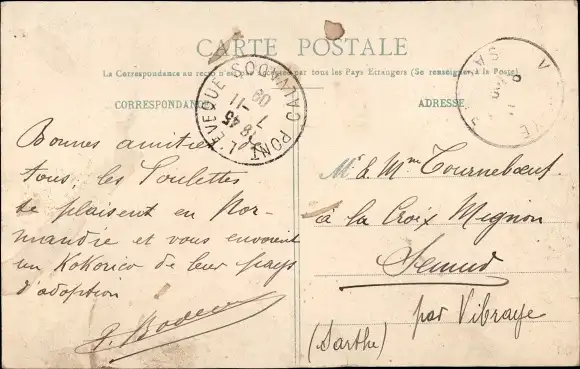 CARTE POSTALE
La Correspondance au recto n'est pas acceptée par tous les Pays Etrangers (Se renseigner à la Poste)
CORRESPONDANCE
ADRESSE
PONT L'EVEQUE CALVADOS
18 45
7 -11
09
Bonnes amitiés de
tous, les Poulettes
se plaisent en Nor-
mandie et vous envoient
un Kokorico de leur pays
d'adoption
Mr & Mme Tourneboeuf
à la Croix Mignon
Semur
par Vibraye
(Sarthe)